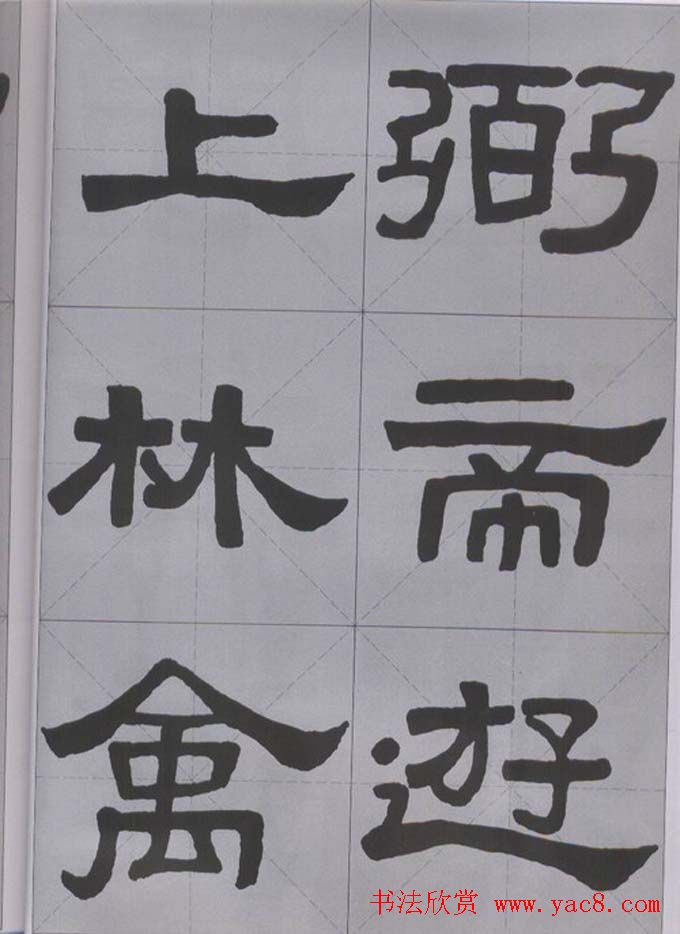 弼帝遊
上林禽
书法欣赏 www.yac8.com